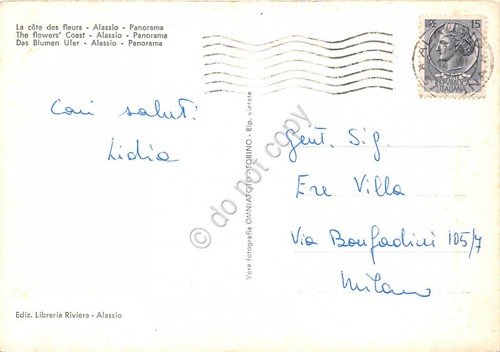 La côte des fleurs - Alassio - Panorama
The flowers' Coast - Alassio - Panorama
Das Blumen Ufer - Alassio - Panorama
Cari saluti
Lidia
Vera fotografia OMNIAFOTO TORINO - Rip. vietata
Gent. Sig.
Ere Villa
Via Bonfadini 105/7
Milano
Ediz. Libreria Riviera - Alassio
do not copy
ITALIANA